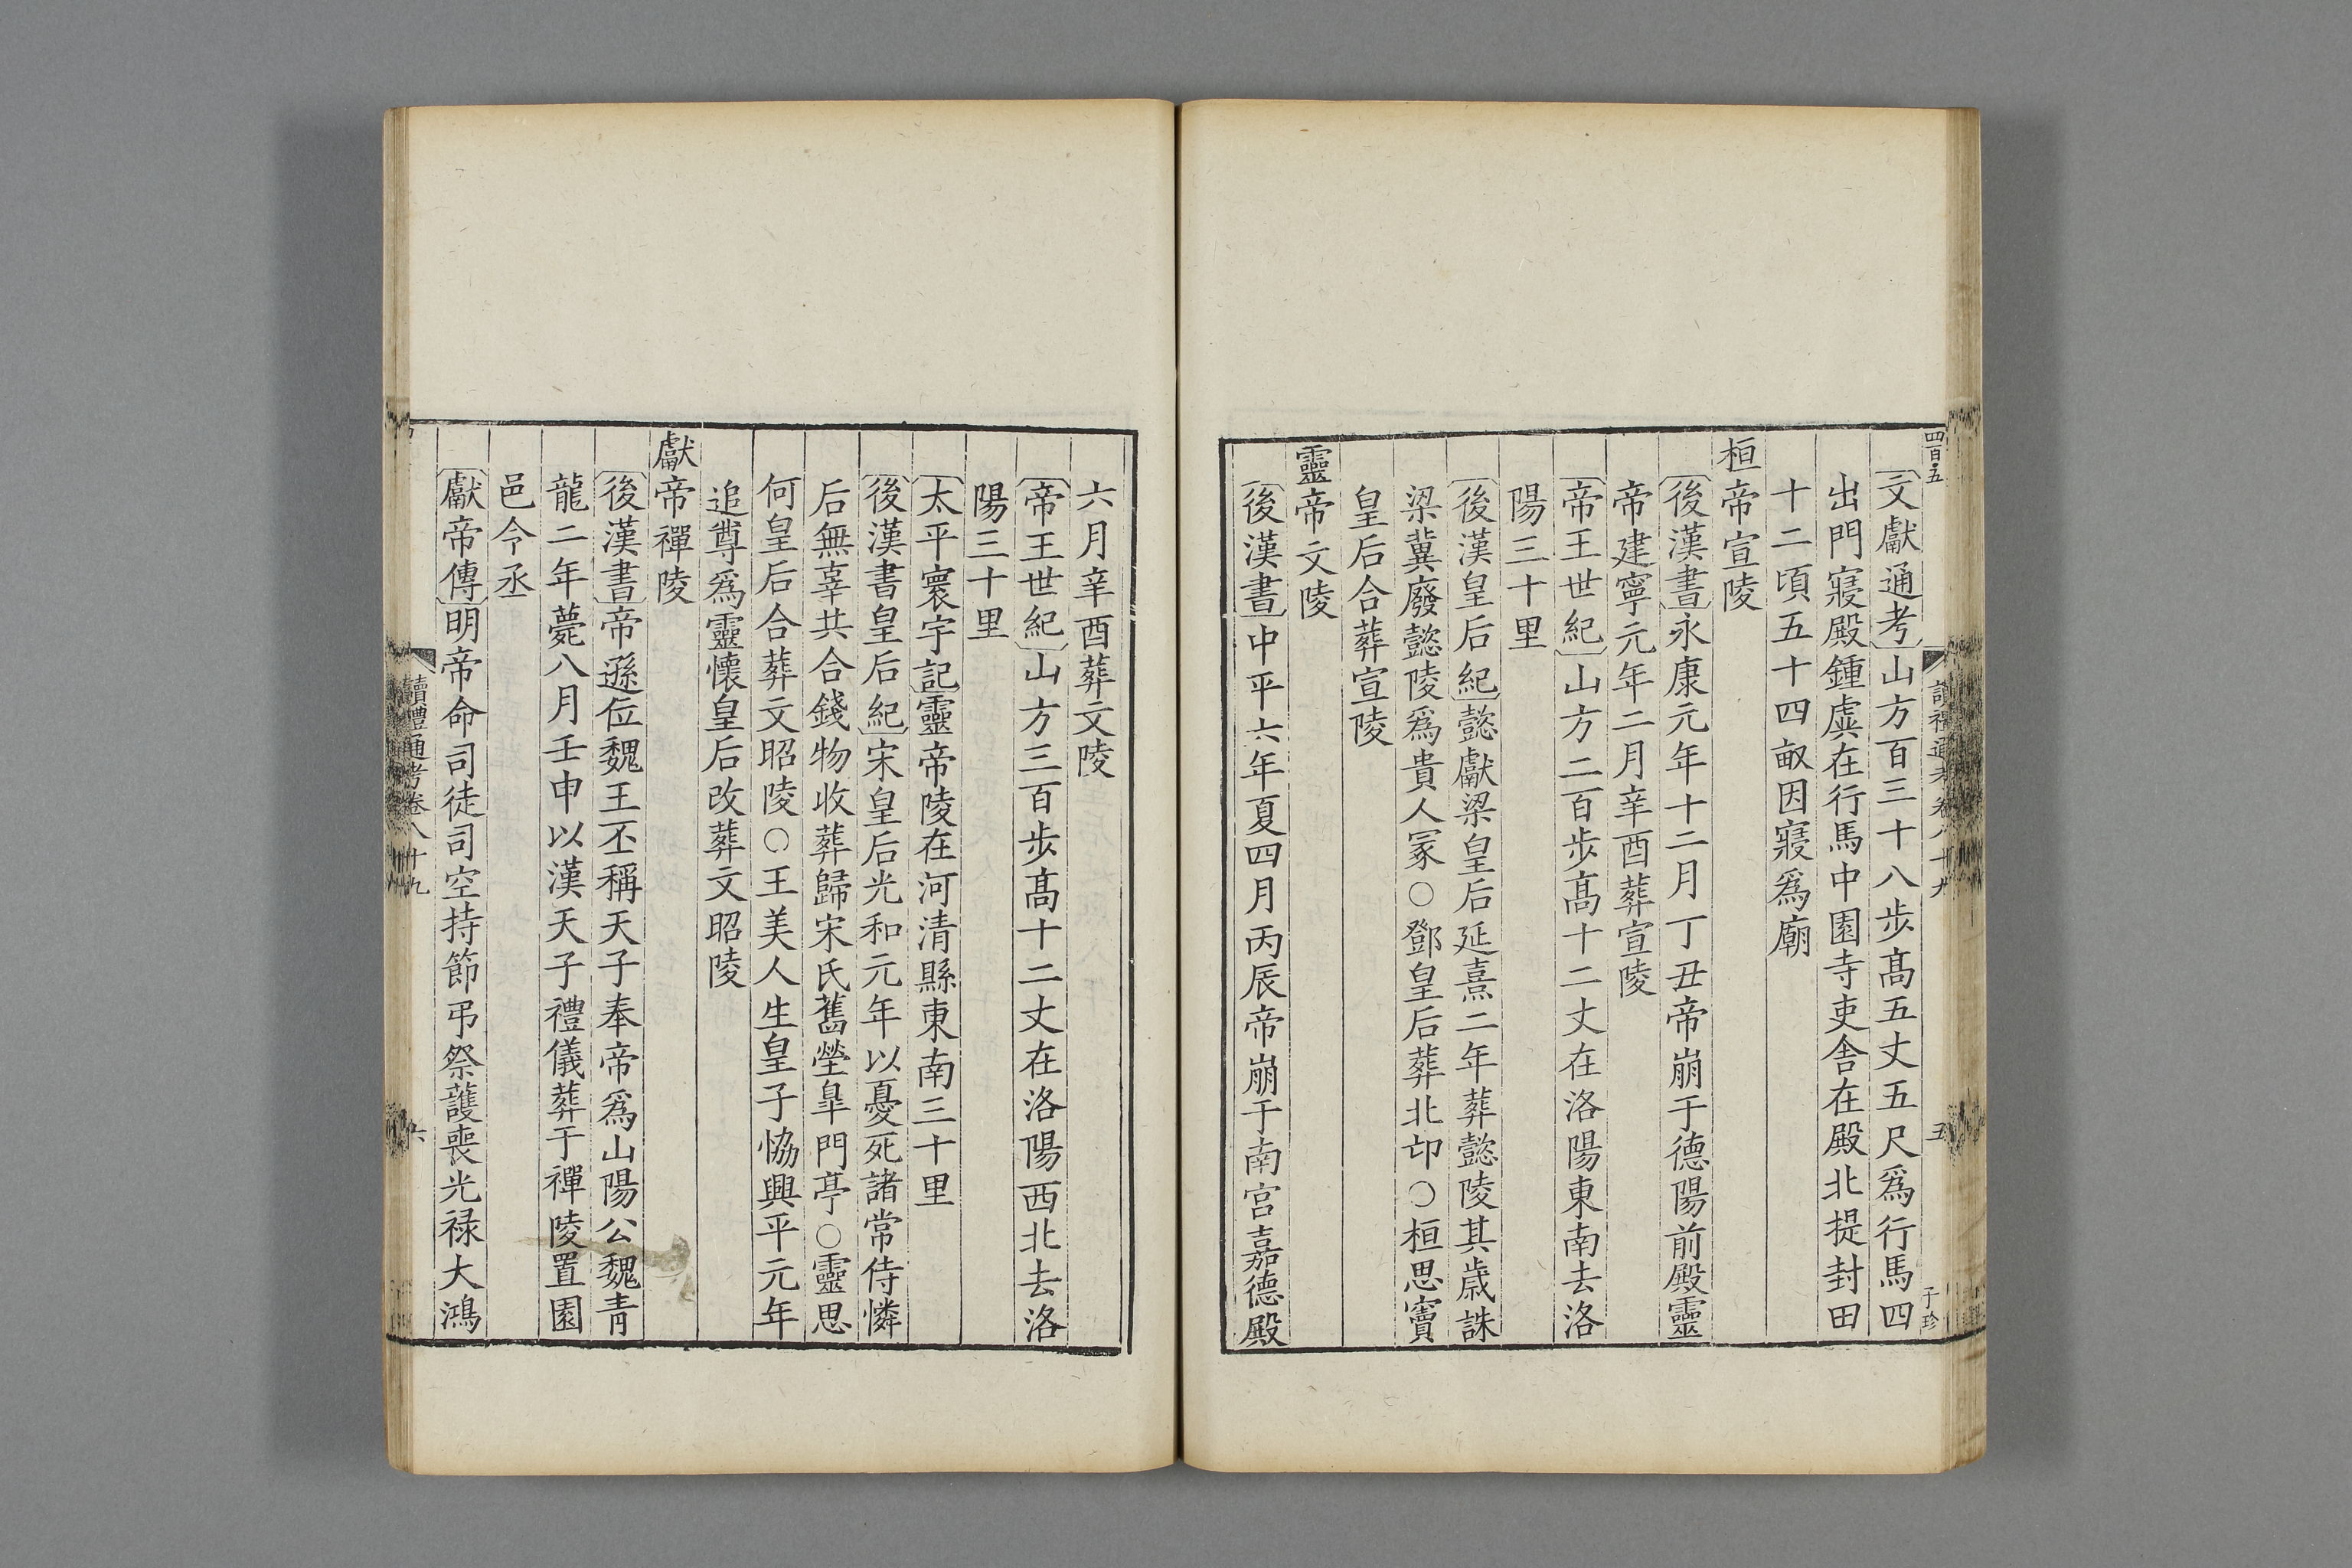 四百五
讀禮通考卷八十九
五
子珍
文獻通考山方百三十八步高五丈五尺爲行馬四
出門寢殿鍾虡在行馬中園寺吏舍在殿北提封田
十二頃五十四畝因寢爲廟
桓帝宣陵
後漢書永康元年十二月丁丑帝崩于德陽前殿靈
帝建寧元年二月辛酉葬宣陵
帝王世紀山方二百步高十二丈在洛陽東南去洛
陽三十里
後漢皇后紀懿獻梁皇后延熹二年葬懿陵其歲誅
梁冀廢懿陵爲貴人冢○鄧皇后葬北邙○桓思竇
皇后合葬宣陵
靈帝文陵
後漢書中平六年夏四月丙辰帝崩于南宮嘉德殿
六月辛酉葬文陵
帝王世紀山方三百步高十二丈在洛陽西北去洛
陽三十里
太平寰宇記靈帝陵在河清縣東南三十里
後漢書皇后紀宋皇后光和元年以憂死諸常侍憐
后無辜共合錢物收葬歸宋氏舊塋皐門亭○靈思
何皇后合葬文昭陵○王美人生皇子恊興平元年
追尊爲靈懷皇后改葬文昭陵
獻帝禪陵
後漢書帝遜位魏王丕稱天子奉帝爲山陽公魏靑
龍二年薨八月壬申以漢天子禮儀葬于禪陵置園
邑令丞
獻帝傳明帝命司徒司空持節弔祭護喪光禄大鴻
讀禮通考卷八十九
六